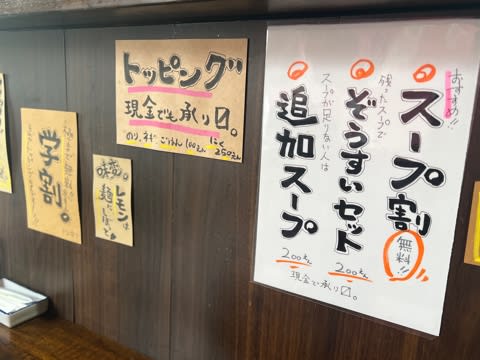 トッピング
現金でも承り〼。
のり、ネギ、ごはん 100えん
にく 250えん
学割。
味変。
レモンは
麺にしぼって
おすすめ!!
スープ割
無料!!
残ったスープで
ぞうすいセット
200えん
スープが足りない人は
追加スープ
200えん
現金で承り〼。